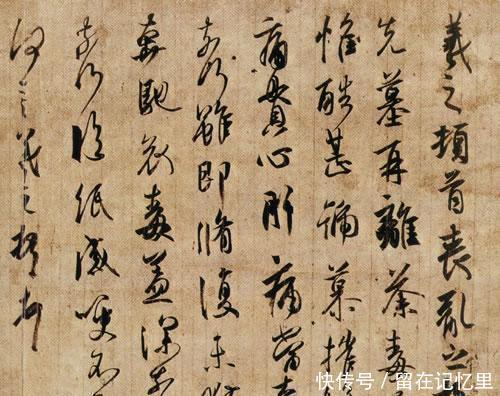 羲之頓首喪亂之
先墓再離荼毒
惟酷甚號慕摧
痛貫心肝痛當奈
奈何雖即脩復未
奔馳哀毒益深奈
奈何臨紙感哽不
何言羲之頓首
快传号／留在记忆里